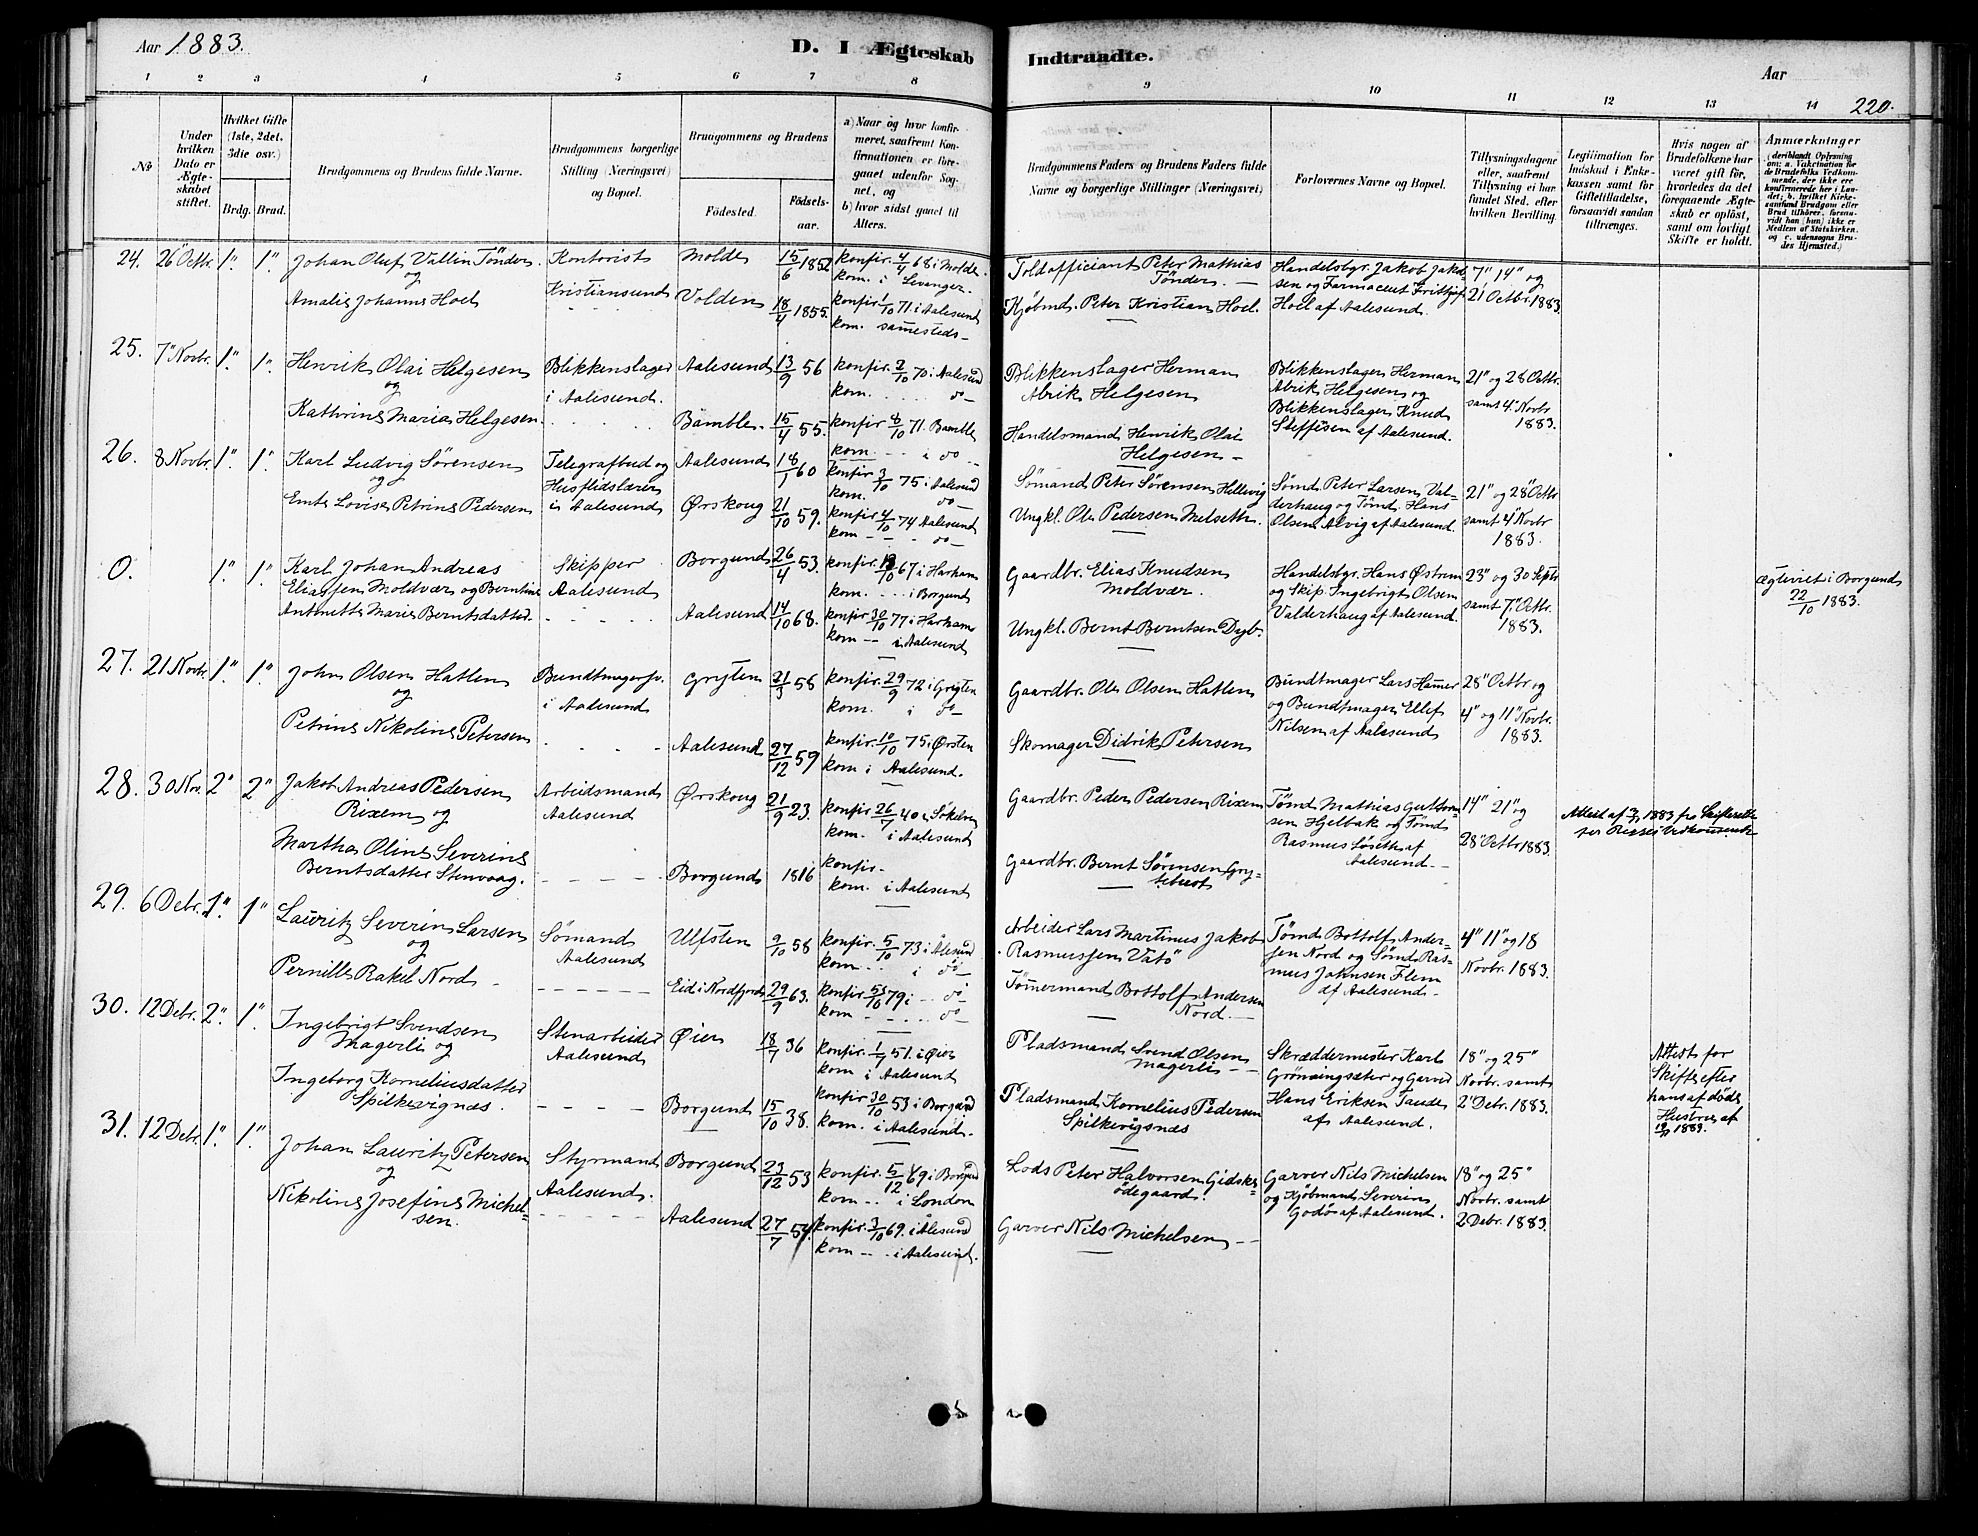 Aar 1883.
D. I Ægteskab Indtraadte.
Aar
220.
1 2 3 4 5 6 7 8 9 10 11 12 13 14
No
Under hvilken Dato er Ægteskabet stiftet.
Hvilket Gifte (1ste, 2det, 3die osv.)
Brdg. Brud.
Brudgommens og Brudens fulde Navne.
Brudgommens borgerlige Stilling (Næringsvei) og Bopæl.
Brudgommens og Brudens
Fødested.
Fødselsaar.
a) Naar og hvor konfirmeret, saafremt Konfirmationen er foregaaet udenfor Sognet, og
b) hvor sidst gaaet til Alters.
Brudgommens Faders og Brudens Faders fulde Navne og borgerlige Stillinger (Næringsvei)
Forlovernes Navne og Bopæl.
Tillysningsdagene eller, saafremt Tillysning ei har fundet Sted, efter hvilken Bevilling.
Legitimation for Indskud i Enkekassen samt for Giftetilladelse, forsaavidt saadan tiltrænges.
Hvis nogen af Brudefolkene har været gift før, hvorledes da det foregaaende Ægteskab er opløst, samt om lovligt Skifte er holdt.
Anmærkninger
(deriblandt Oplysning om: a. Vakcination for de Brudefolks Vedkommende, der ikke ere konfirmerede her i Landet; b. hvilket Kirkesamfund Brudgom eller Brud tilhører, forsaavidt han (hun) ikke er Medlem af Statskirken, og c. udensogns Brudes Hjemsted.)
24. 26 Octbr. 1". 1". Johan Oluf Vallin Tönder og Kontorist Kristiansund Molde 15/6 1852 konfir. 4/4 68 i Molde. kom. i Levanger. Toldofficiant Peter Mathias Tönder. Handelsbgr. Jakob Jakobsen og Farmaceut Frithjof Hoel af Aalesund. 7" 14" og 21 Octbr. 1883.
Amalie Johanne Hoel Volden 18/4 1855. konfir 1/10 71. i Aalesund kom. samesteds Kjöbmd. Peter Kristian Hoel.
25. 7" Novbr. 1". 1". Henrik Olai Helgesen og Blikkenslager i Aalesund. Aalesund 13/9 56 konfir. 2/10 70 i Aalesund kom. do Blikkenslager Herman Abrik Helgesen Blikkenslager Herman Abrik Helgesen og Blikkenslager Knud Steffesen af Aalesund. 21" og 28 Octbr. samt 4" Novbr 1883.
Kathrine Marie Helgesen. Bamble. 15/4 55. konfir 8/10 71. Bamble kom. i do Handelsmand Henrik Olai Helgesen
26. 8 Novbr. 1". 1". Karl Ludvig Sörensen og Telegrafbud og Husflidslærer i Aalesund Aalesund 18/1 60 konfir. 3/10 75 i Aalesund kom. do Sömand Peter Sörensen Hellevig Sömd. Peter Larsen Valderhaug og Tömd. Hans Olsen Alvig af Aalesund. 21" og 28" Octbr samt 4" Novbr 1883.
Emte Lovise Petrine Pedersen Ørskoug 21/10 59. konfir. 4/10 74 Aalesund kom do Ungkl. Ole Pedersen Melseth.
O. 1". 1". Karl Johan Andreas Eliassen Moldvær og Berntine Skipper Aalesund Borgund 26/4 53. konfir. 13/10 67 i Harham kom. i Borgund Gaardbr. Elias Knudsen Moldvær. Handelsbgr. Hans Østrem og Skip. Ingebrigt Olsen Valderhaug af Aalesund. 23" og 30 Septr samt 7" Octbr. 1883. ægteviet i Borgund 22/10 1883.
Antonette Marie Berntsdatter Aalesund 14/10 68. konfir 30/10 77 i Harham kom i Aalesund Ungkl. Bernt Berntsen Dyb.
27. 21 Novbr. 1". 1". John Olsen Hatlen og Bundtmagersv. i Aalesund Gryten 21/3 58 konfir. 29/9 72 i Gryten kom. i do Gaardbr. Ole Olsen Hatlen Bundtmager Lars Hamer og Bundtmager Ellef Nilsen af Aalesund 28" Octbr og 4" og 11" Novbr. 1883.
Petrine Nikoline Petersen Aalesund 27/12 59 konfir. 10/10 75. i Ørsten kom i Aalesund. Skomager Didrik Petersen
28. 30 Nov. 2" 2" Jakob Andreas Pedersen Rixem og Arbeidsmand Aalesund Ørskoug 21/9 23. konfir. 26/7 40 i Sökelven kom. i Aalesund Gaardbr. Peder Pedersen Rixem Tömd. Mathias Guttormsen Hjelbak og Tömd. Rasmus Löseth af Aalesund 14" 21" og 28" Octbr 1883. Attest af 1883 fra Skifteretten
Marthe Oline Severine Berntsdatter Stenvaag. Borgund 1816 konfir. kom. i Aalesund Gaardbr. Bernt Sörensen Grytebust
29. 6 Debr. 1". 1" Lauritz Severin Larsen og Sömand Aalesund Ulfsten 9/10 58 konfir. 5/10 73 i Ålesund kom. i do Arbeider Lars Martinus Jakob Rasmussen Vatö Tömd. Bottolf Andersen Nord og Sömd. Rasmus Johnsen Flem af Aalesund. 4" 11" og 18 Novbr. 1883.
Pernille Rakel Nord Eid i Nordfjord 29/9 63. konfir. 5/10 79 i do kom do Tömmermand Bottolf Andersen Nord.
30. 12 Debr. 2". 1". Ingebrigt Svendsen Magerli og Stenarbeider Aalesund Øier 18/7 36 konfir. 1/7 51. i Øier kom i Aalesund Pladsmand Svend Olsen Magerli Skræddermester Karl Grönningsæter og Garver Hans Eriksen Tande af Aalesund. 18" og 25" Novbr. samt 2" Debr. 1883. Attest for Skifte efter hans afdöde Hustru af 1883.
Ingeborg Korneliusdatter Spilkevignæs. Borgund 15/10 38. konfir 30/10 53 i Borgund kom. i Aalesund. Pladsmand Kornelius Pedersen Spilkevigsnæs
31. 12 Debr. 1". 1". Johan Lauritz Petersen og Styrmand Aalesund. Borgund 23/12 53 konfir. 5/12 69 i Borgund kom. i London Lods Peter Halvorsen Gidske ödegaard. Garver Nils Michelsen og Kjöbmand Severin Godö af Aalesund. 18" og 25" Novbr. samt 2 Debr. 1883.
Nikoline Josefine Michelsen. Aalesund 27/7 54. konfir. 3/10 69. i Ålesund kom i Aalesund. Garver Nils Michelsen